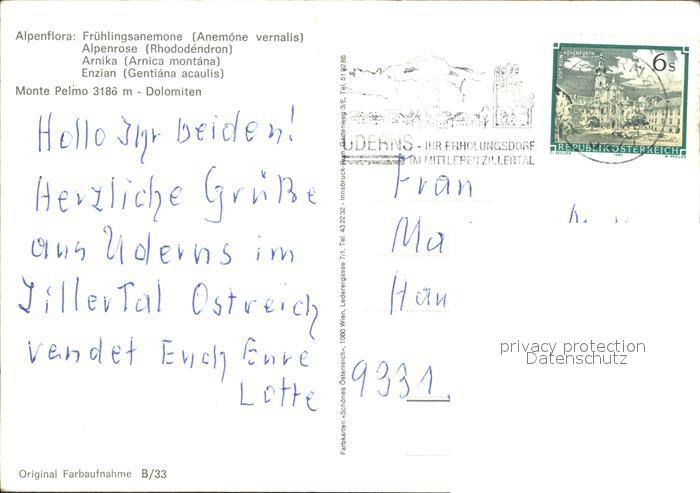 Alpenflora: Frühlingsanemone (Anemóne vernalis)
Alpenrose (Rhododéndron)
Arnika (Arnica montána)
Enzian (Gentiána acaulis)
Monte Pelmo 3186 m - Dolomiten
Hallo Ihr beiden!
Herzliche Grüße
aus Uderns im
Zillertal Östreich
sendet Euch Eure
Lotte
Original Farbaufnahme B/33
Farbkarten »Schönes Österreich«, 1080 Wien, Lederergasse 7/1, Tel. 43 22 32 - Innsbruck-Rum, Gartenweg 3/E, Tel. 51 92 85
UDERNS - IHR ERHOLUNGSDORF
IM MITTLEREN ZILLERTAL
6 S
REPUBLIK ÖSTERREICH
Fran
Ma
Han
9331
privacy protection
Datenschutz